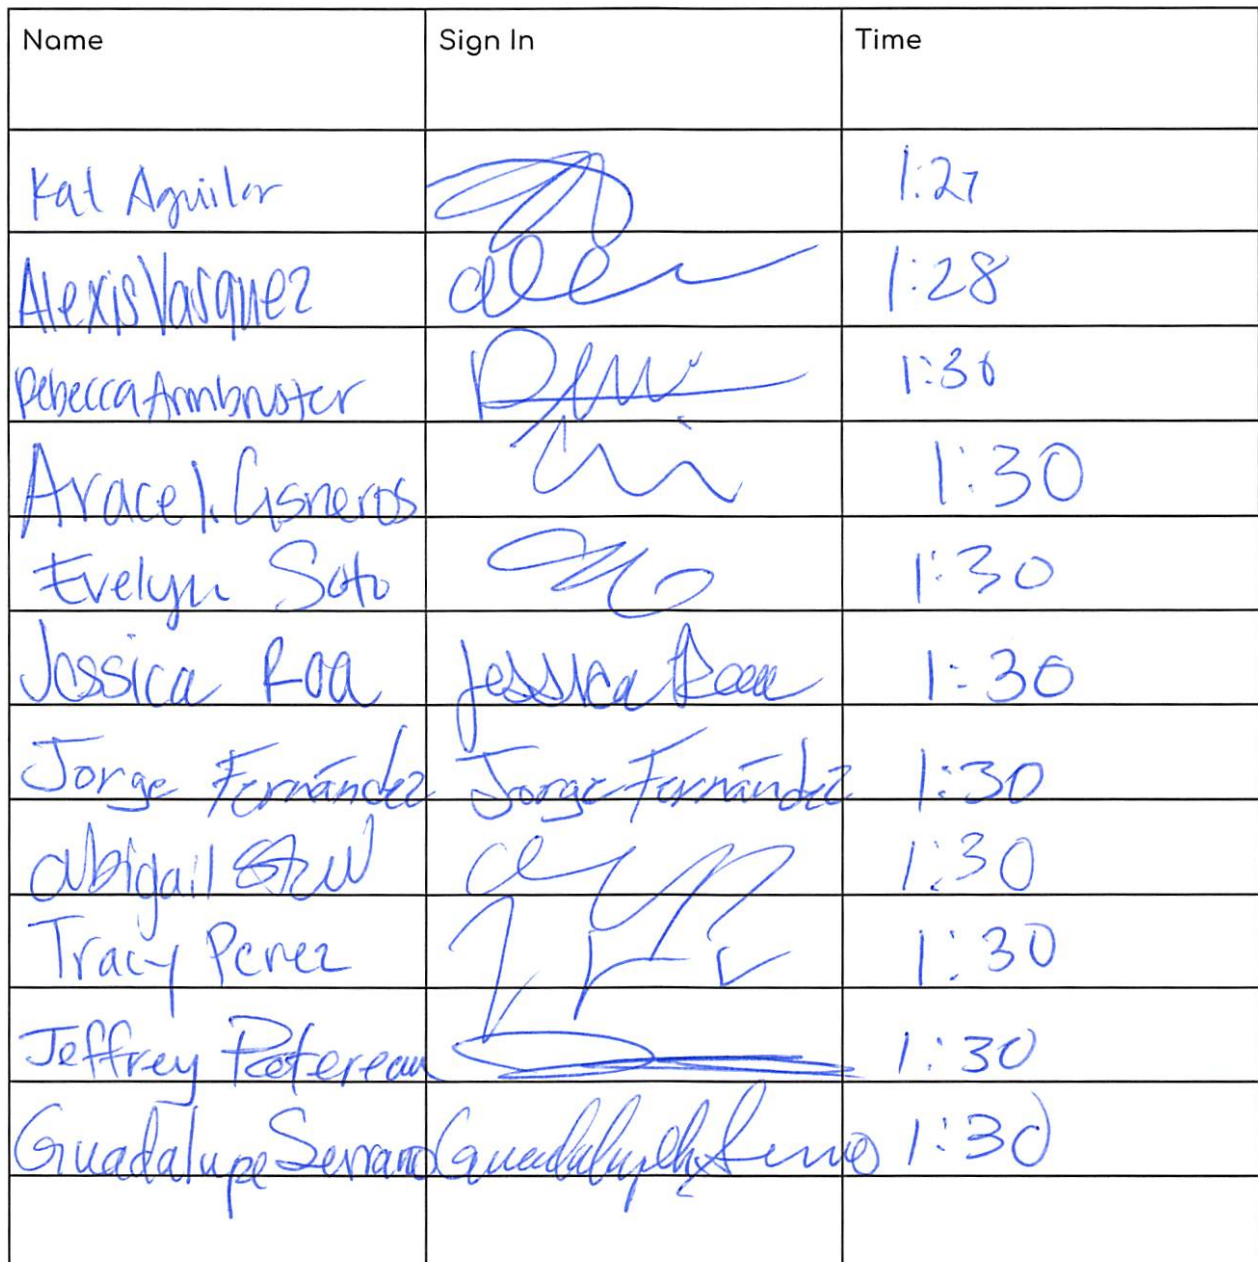 Name Sign In Time
Kat Aguilar 1:27
Alexis Vasquez 1:28
Rebecca Armbruster 1:30
Araceli Cisneros 1:30
Evelyn Soto 1:30
Jessica Roa Jessica Roa 1:30
Jorge Fernández Jorge Fernández 1:30
Abigail 1:30
Tracy Perez 1:30
Jeffrey 1:30
Guadalupe Serrano Guadalupe 1:30